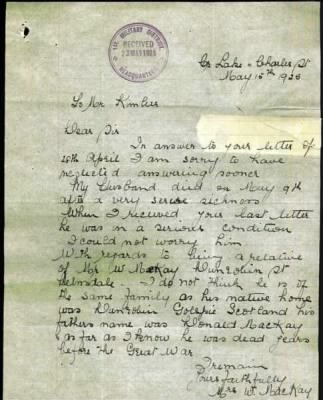 MILITARY DISTRICT
RECEIVED
23 MAY 1925
HEADQUARTERS
Co Lake & Charles St
May 15th 1925
To Mr
Dear Sir
In answer to your letter of
April I am sorry to have
neglected answering sooner
My Husband died on May 9th
after a very serise sickness
When I received your last letter
he was in a serious condition
I could not worry him
With regards to being a relative
of Mr W MacKay Dunrobin St
Helmsdale I do not think he is of
the same family as his native home
was Dunrobin Golspie Scotland his
fathers name was Donald MacKay
as far as I know he was dead years
before the Great War
I remain
Yours faithfully
Mrs W. MacKay